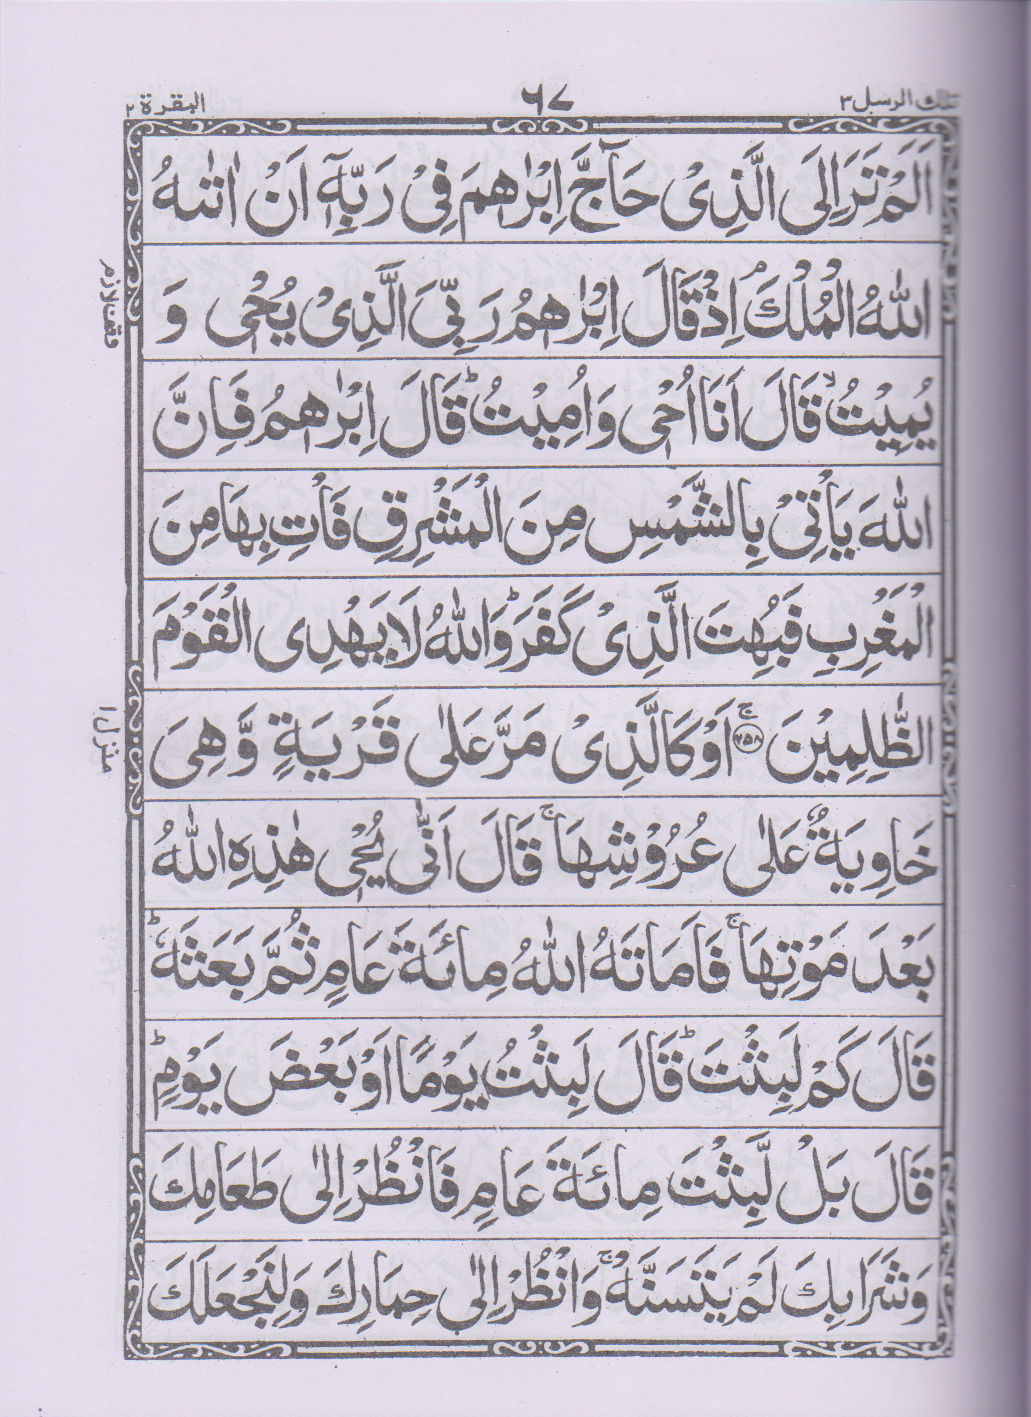 تلك الرسل ٣
٦٧
البقرة ٢
اَلَمْ تَرَ اِلَى الَّذِىْ حَآجَّ اِبْرٰهٖمَ فِىْ رَبِّهٖٓ اَنْ اٰتٰىهُ
اللّٰهُ الْمُلْكَ ۘ اِذْ قَالَ اِبْرٰهٖمُ رَبِّىَ الَّذِىْ يُحْىٖ وَ
وقف لازم
يُمِيْتُ ۙ قَالَ اَنَا اُحْىٖ وَاُمِيْتُ ؕ قَالَ اِبْرٰهٖمُ فَاِنَّ
اللّٰهَ يَاْتِىْ بِالشَّمْسِ مِنَ الْمَشْرِقِ فَاْتِ بِهَا مِنَ
الْمَغْرِبِ فَبُهِتَ الَّذِىْ كَفَرَ ؕ وَاللّٰهُ لَا يَهْدِى الْقَوْمَ
الظّٰلِمِيْنَ ۚ ﴿٢٥٨﴾ اَوْ كَالَّذِىْ مَرَّ عَلٰى قَرْيَةٍ وَّهِىَ
منزل ١
خَاوِيَةٌ عَلٰى عُرُوْشِهَا ۚ قَالَ اَنّٰى يُحْىٖ هٰذِهِ اللّٰهُ
بَعْدَ مَوْتِهَا ۚ فَاَمَاتَهُ اللّٰهُ مِائَةَ عَامٍ ثُمَّ بَعَثَهٗ ؕ
قَالَ كَمْ لَبِثْتَ ؕ قَالَ لَبِثْتُ يَوْمًا اَوْ بَعْضَ يَوْمٍ ؕ
قَالَ بَلْ لَّبِثْتَ مِائَةَ عَامٍ فَانْظُرْ اِلٰى طَعَامِكَ
وَشَرَابِكَ لَمْ يَتَسَنَّهْ ۚ وَانْظُرْ اِلٰى حِمَارِكَ وَلِنَجْعَلَكَ